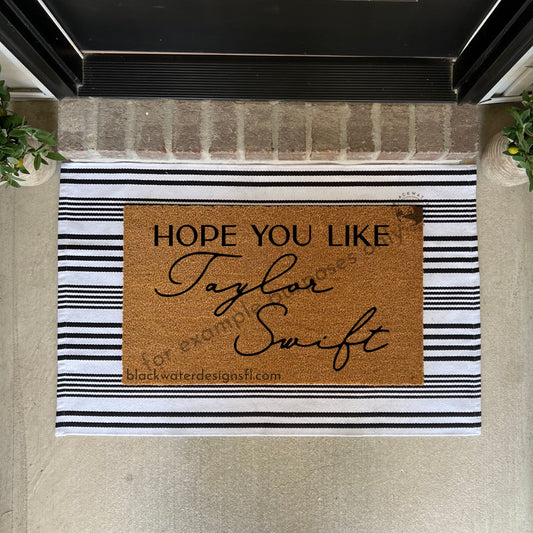 HOPE YOU LIKE
Taylor
Swift
for example purposes only
blackwaterdesignsfl.com